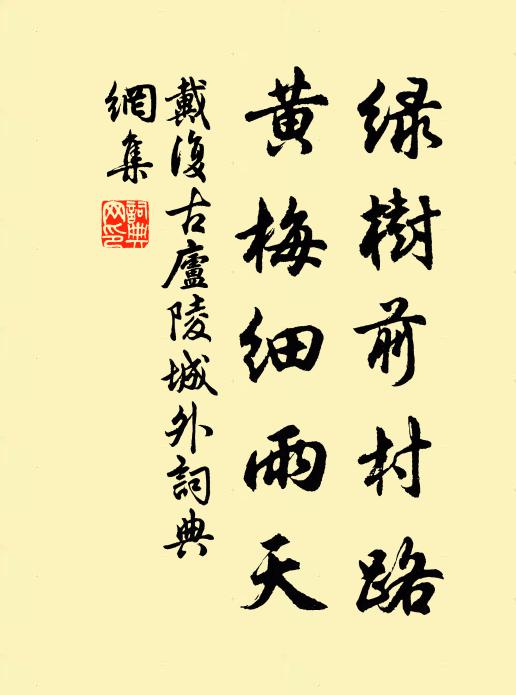 绿樹前村路
黄梅細雨天
戴復古廬陵城外詞典
網集
詞典
网印